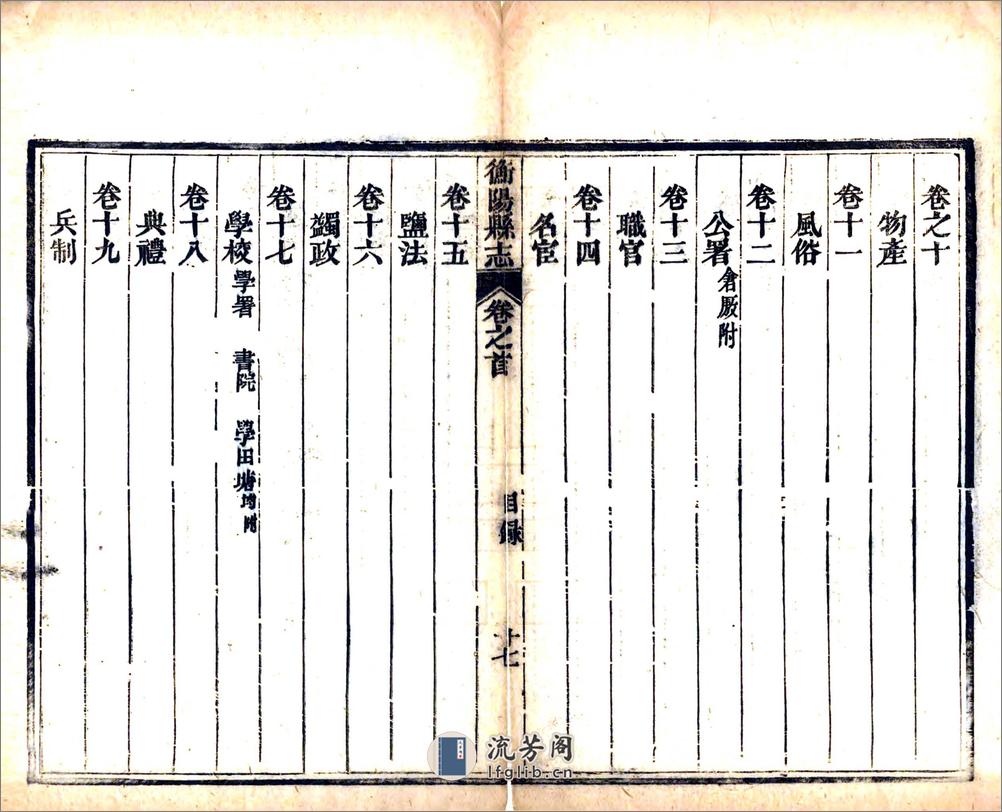 卷之十
物產
卷十一
風俗
卷十二
公署倉厫附
卷十三
職官
卷十四
名宦
衡陽縣志 卷之首 目錄 十七
卷十五
鹽法
卷十六
蠲政
卷十七
學校學署 書院 學田塘均附
卷十八
典禮
卷十九
兵制
流芳阁
lfglib.cn